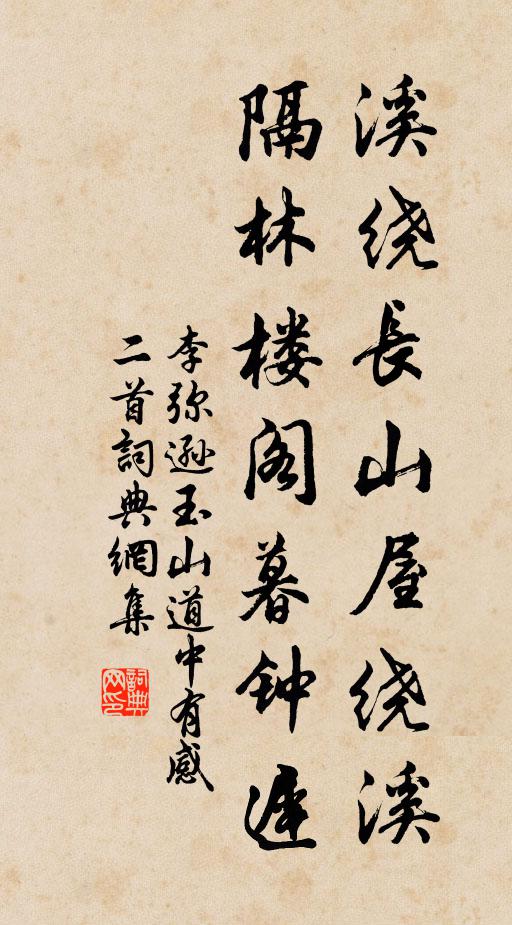 溪绕長山屋绕溪
隔林楼阁暮钟遅
李弥遜玉山道中有感
二首詞典網集
詞典
网印